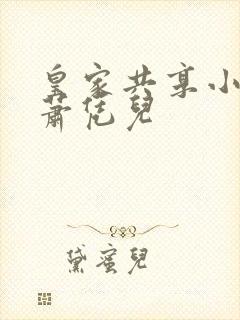 皇家共享小
蕭恁兒
黛蜜兒